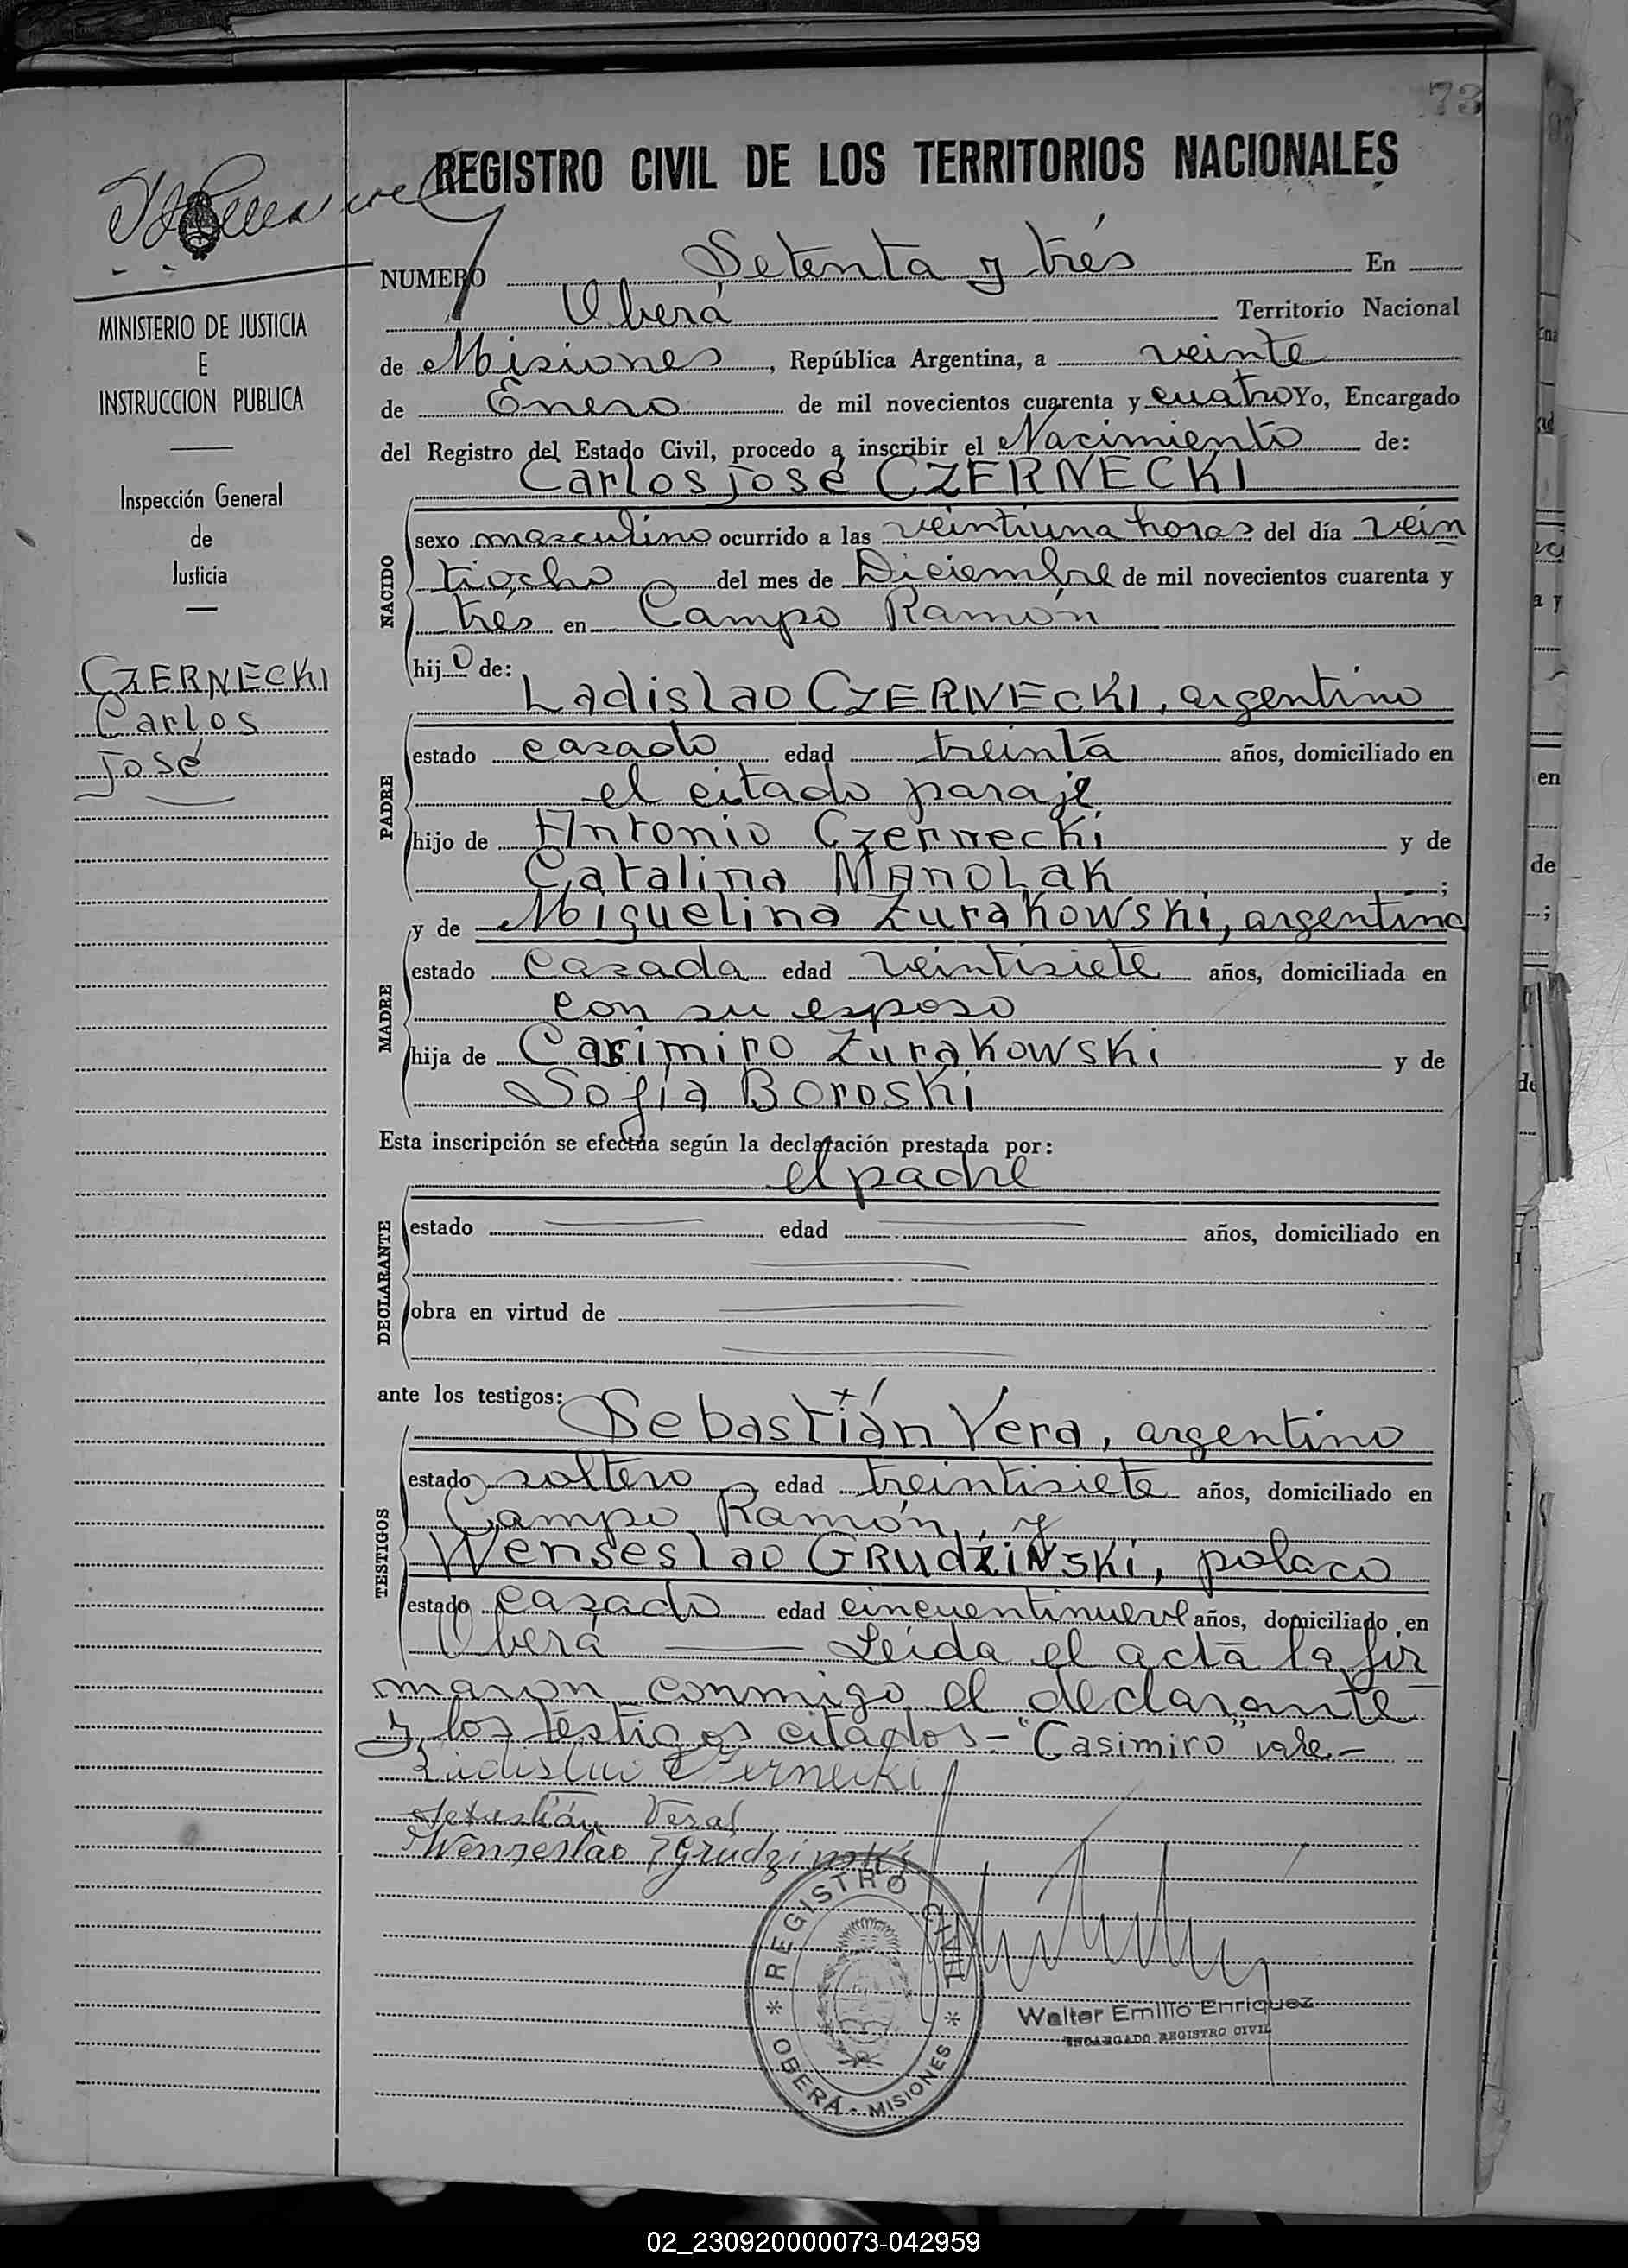 73
REGISTRO CIVIL DE LOS TERRITORIOS NACIONALES
NUMERO Setenta y trés En
Oberá Territorio Nacional
de Misiones, República Argentina, a veinte
de Enero de mil novecientos cuarenta y cuatro Yo, Encargado
del Registro del Estado Civil, procedo a inscribir el Nacimiento de:
Carlos José CZERNECKI
NACIDO
sexo masculino ocurrido a las veintiuna horas del día vein
tiocho del mes de Diciembre de mil novecientos cuarenta y
trés en Campo Ramón
hijo de:
Ladislao CZERNECKI, argentino
PADRE
estado casado edad treinta años, domiciliado en
el citado paraje
hijo de Antonio Czernecki y de
Catalina MANOLAK ;
y de Miguelina Zurakowski, argentina
MADRE
estado casada edad veintisiete años, domiciliada en
con su esposo
hija de Casimiro Zurakowski y de
Sofía Boroski
Esta inscripción se efectúa según la declaración prestada por:
el padre
DECLARANTE
estado edad años, domiciliado en
obra en virtud de
ante los testigos:
Sebastián Vera, argentino
TESTIGOS
estado soltero edad treintisiete años, domiciliado en
Campo Ramón, y
Wenseslao GRUDZINSKI, polaco
estado casado edad cincuentinueve años, domiciliado en
Oberá Leida el acta la fir
maron conmigo el declarante
y los testigos citados - "Casimiro" vale -
Ladislao Czernecki
Sebastián Vera
Wenzeslao Grudzinski
REGISTRO CIVIL
* OBERÁ - MISIONES *
Walter Emilio Enriquez
ENCARGADO REGISTRO CIVIL
MINISTERIO DE JUSTICIA
E
INSTRUCCION PUBLICA
Inspección General
de
Justicia
CZERNECKI
Carlos
José
en
de
02_230920000073-042959